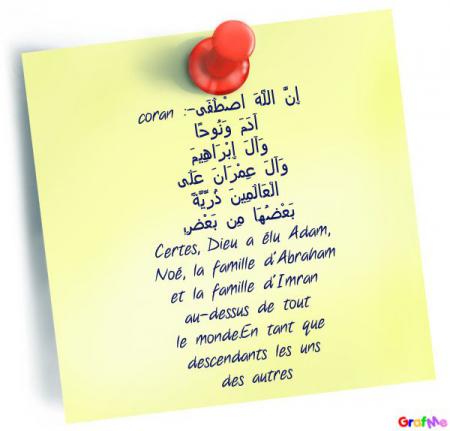 coran :-إِنَّ اللَّهَ اصْطَفَى
آدَمَ وَنُوحًا
وَآلَ إِبْرَاهِيمَ
وَآلَ عِمْرَانَ عَلَى
الْعَالَمِينَ ذُرِّيَّةً
بَعْضُهَا مِن بَعْضٍ
Certes, Dieu a élu Adam,
Noé, la famille d'Abraham
et la famille d'Imran
au-dessus de tout
le monde.En tant que
descendants les uns
des autres
GrafMe